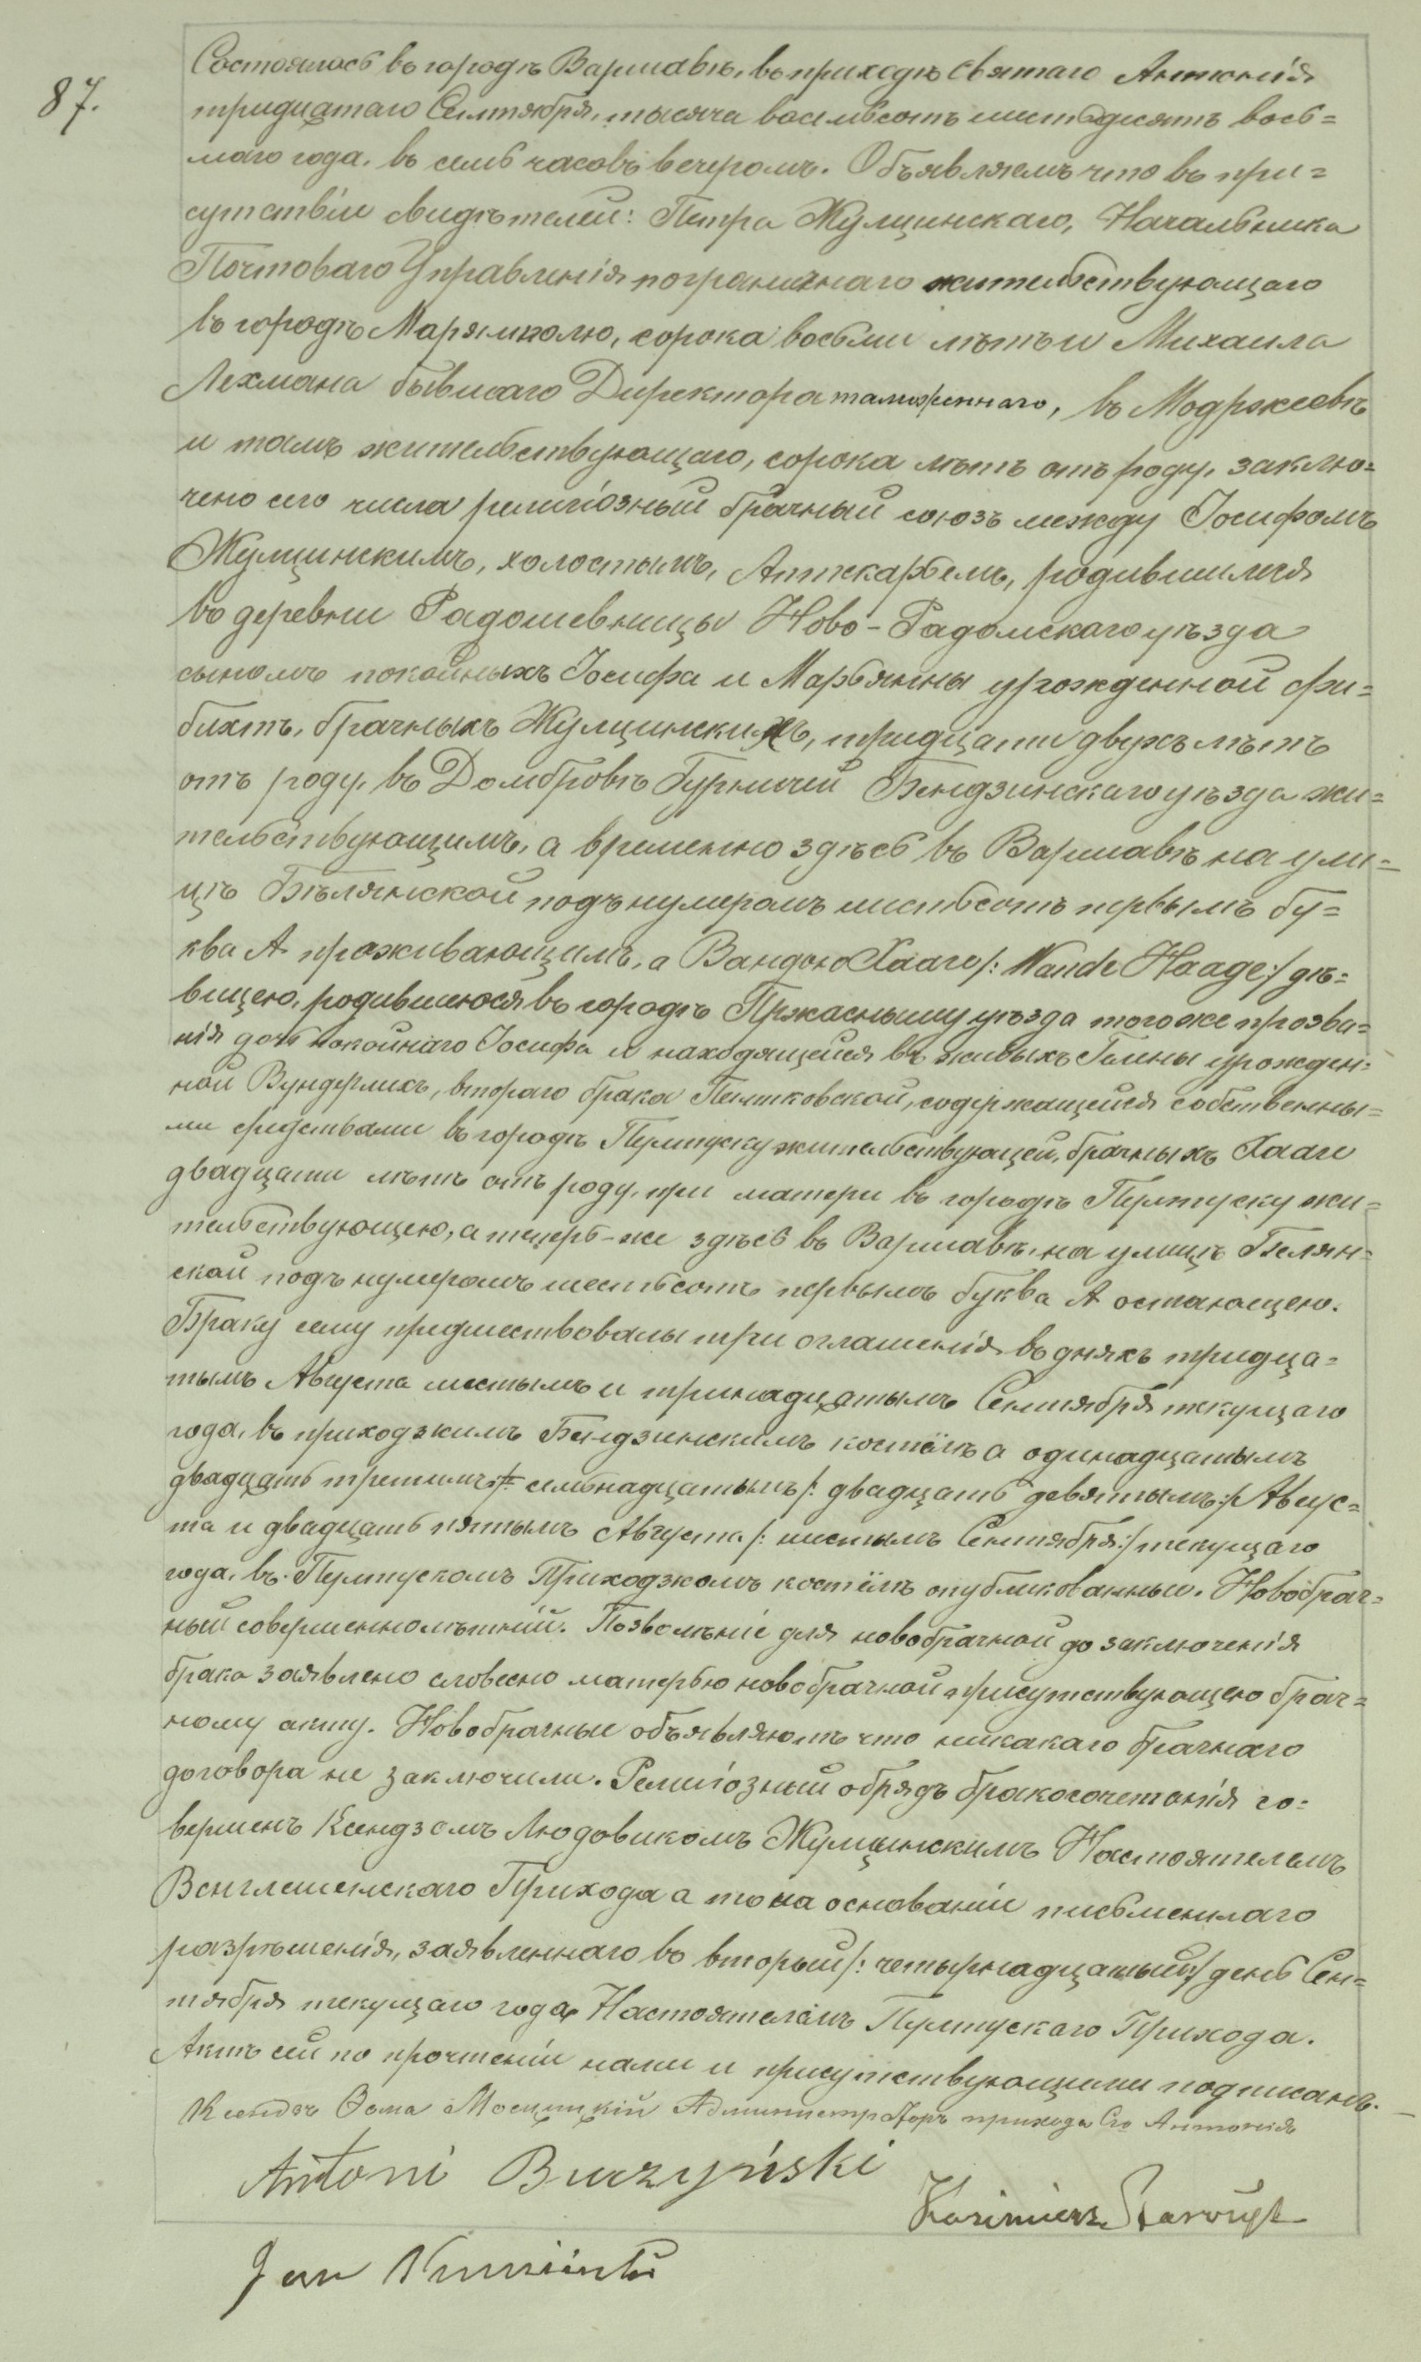 87.
Состоялось въ городѣ Варшавѣ, въ приходѣ Святаго Антонія
тридцатаго Сентября, тысяча восемьсотъ шестьдесятъ вось=
маго года, въ семь часовъ вечеромъ. Объявляемъ что въ при=
сутствіи свидѣтелей: Петра Жулцинскаго, Начальника
Почтоваго Управленія пограничнаго жительствующаго
въ городѣ Марямполю, сорока восьми лѣтъ и Михаила
Лехмана бывшаго Директора таможеннаго, въ Модржеовѣ
и тамъ жительствующаго, сорока лѣтъ отъ роду, заклю=
чено сего числа религіозный брачный союзъ между Іосифомъ
Жулцинскимъ, холостымъ, Аптекарьемъ, родившимся
въ деревни Радошевницы Ново-Радомскаго уѣзда
сыномъ покойныхъ Іосифа и Марьянны урожденной Фи=
бихтъ, брачныхъ Жулцинскихъ, тридцати двухъ лѣтъ
отъ роду, въ Домбровѣ Гурничей Бендзинскаго уѣзда жи=
тельствующимъ, а временно здѣсь въ Варшавѣ на ули=
цѣ Бѣлянской подъ нумеромъ шестьсотъ первымъ бу=
ква А проживающимъ, а Вандою Хааге /: Wande Haage :/ дѣ=
вицею, родившеюся въ городѣ Пржаснышу уѣзда тогоже прозва=
нія дочь покойнаго Іосифа и находящейся въ живыхъ Галины урожден=
ной Вундерлихъ, втораго брака Пешковской, содержащейся собственны=
ми средствами въ городѣ Пултуску жительствующей, брачныхъ Хааге
двадцати лѣтъ отъ роду, при матери въ городѣ Пултуску жи=
тельствующею, а теперь-же здѣсь въ Варшавѣ, на улицѣ Белян=
ской подъ нумеромъ шестьсотъ первымъ буква А остающею.
Браку сему предшествовалы три оглашенія въ дняхъ тридца=
тымъ Августа шестымъ и тринадцатымъ Сентября текущаго
года, въ приходзкимъ Бендзинскимъ костёлѣ а одинадцатымъ
двадцать третимъ /: семнадцатымъ /: двадцать девятымъ :/ Авгус=
та и двадцать пятымъ Августа /: шестымъ Сентября :/ текущаго
года, въ Пултускомъ Приходзкомъ костёлѣ опубликованныи. Новобрач=
ный совершеннолѣтній. Позволѣніе для новобрачной до заключенія
брака заявлено словесно матерью новобрачной присутствующею брач=
ному акту. Новобрачные объявляютъ что никакаго брачнаго
договора не заключили. Религіозный обрядъ бракосочетанія со=
вершенъ Ксендзомъ Людовикомъ Жулцинскимъ Настоятелемъ
Венглешинскаго Прихода а то на основаніи письменнаго
разрѣшенія, заявленнаго во вторый /: четырнадцатый :/ день Сен=
тября текущаго года Настоятелемъ Пултускаго Прихода.
Актъ сей по прочтеніи нами и присутствующими подписанъ.
Ксендзъ Ѳома Мосцицкій Администраторъ прихода Св. Антонія
Antoni Burzyński
Kazimierz
Jan